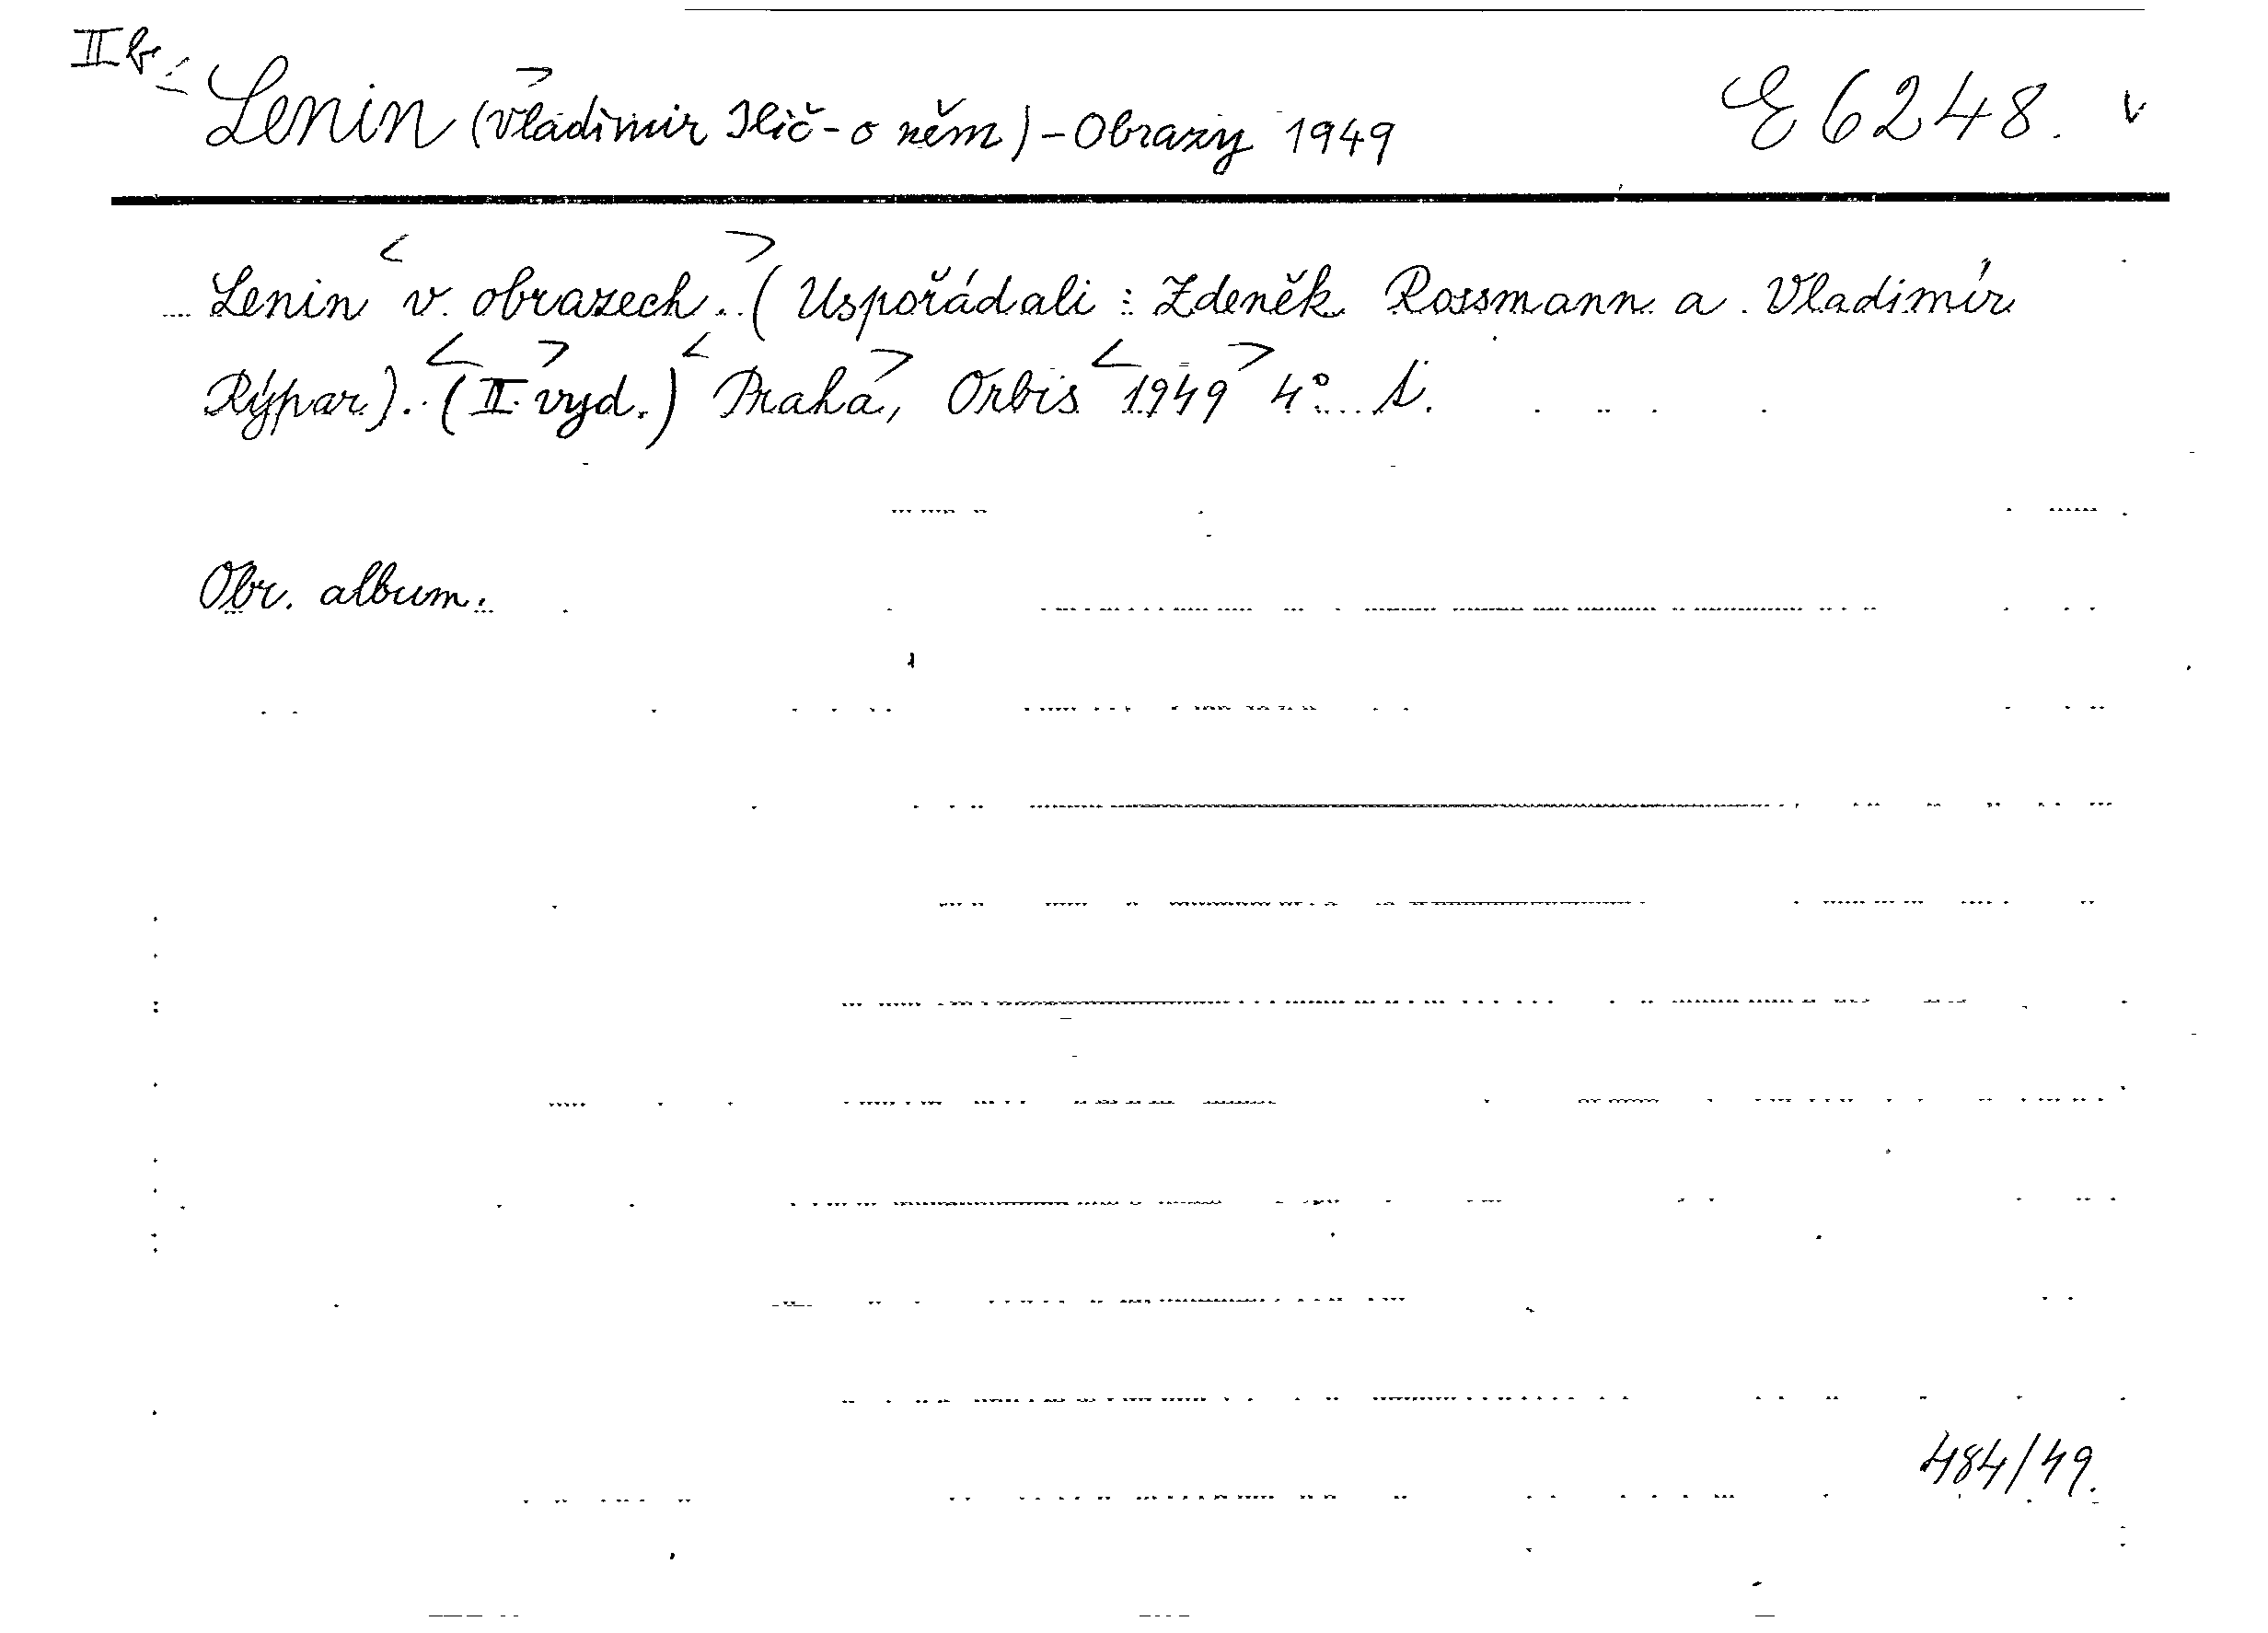 II b
Lenin (Vladimir Ilič - o něm) - Obrazy 1949 E 6248. v
Lenin v obrazech. (Uspořádali: Zdeněk Rossmann a Vladimír
Rýpar). (II. vyd.) Praha, Orbis 1949 4°
Obr. album.
484/49.